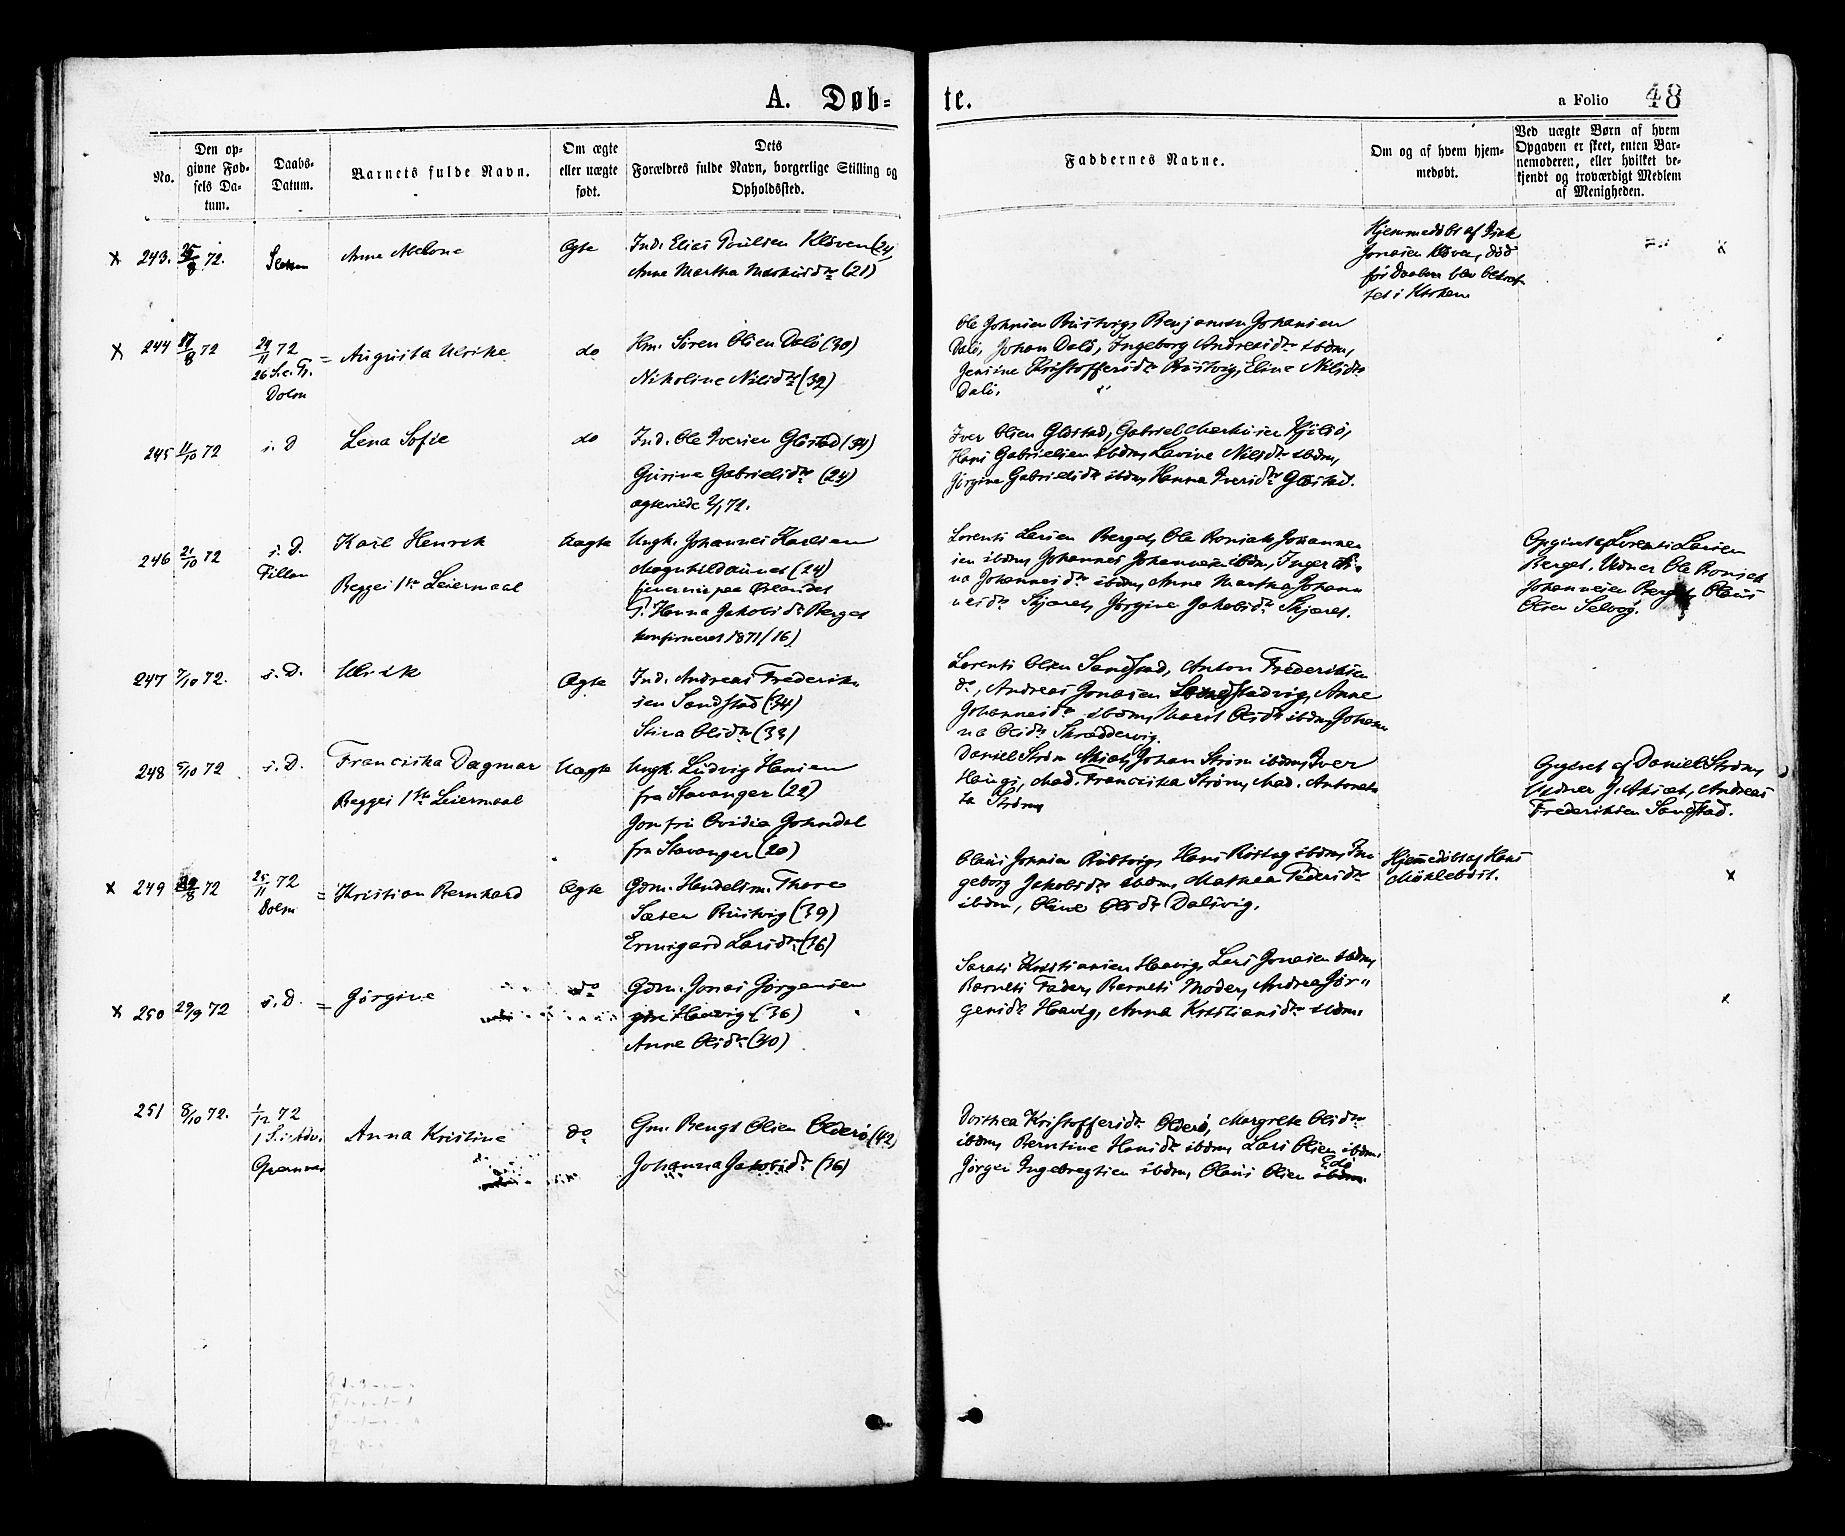 A. Døb= te.
a Folio 48
No.
Den op-
givne Fød-
sels Da-
tum.
Daabs-
Datum.
Barnets fulde Navn.
Om ægte
eller uægte
født.
Dets
Forældres fulde Navn, borgerlige Stilling og
Opholdssted.
Faddernes Navne.
Om og af hvem hjem-
medøbt.
Ved uægte Børn af hvem
Opgaven er skeet, enten Bar-
nemoderen, eller hvilket be-
kjendt og troværdigt Medlem
af Menigheden.
x 243. 8 72. Anne Melone Ægte Ind. Elias Poulsen Kløven (24)
Anne Martha Markusdr (21)
Hjemmedøbt af Isak
Jonasen Kløven, død
før Daaben blev bekræf
tet i Kirken
x 244 8 72 24/11 72 = Augusta Ulrike do Km. Søren Olsen Dalø (30)
26 S. e. Tr.
Dolm
Nikoline Nilsdr (32)
Ole Johnsen Rustvig, Benjamin Johansen
Dalø, Johan Dalø, Ingeborg Andreasdr ibdm,
Jensine Kristoffersdr Rustvig, Eline Nilsdr
Dalø.
245 11/10 72 s. D Lena Sofie do Ind. Ole Iversen Glåstad (34)
Gurine Gabrielsdr (24)
ægteviede 2/1 72.
Iver Olsen Glåstad, Gabriel Markusen
Hans Gabrielsen ibdm, Lavine Nilsdr ibdm,
Jørgine Gabrielsdr ibdm, Hanna Iversdr Glåstad.
246 21/10 72 s. D. Karl Henrik Uægte Ungk. Johannes Karlsen
Fillan
Begges 1ste Leiermaal
(24)
tjenernde paa Ørlandet
P. Hanna Jakobsdr Berget
konfirmeret 1871 (16)
Lorents Larsen Berget, Ole Ronjak Johanne-
sen ibdm, Johannes Johannesen ibdm, Inger
na Johannesdr ibdm, Anne Martha Johann
nesdr Skjaret, Jørgine Jakobsdr Skjaret.
Opgivet af Lorents Larsen
Berget. Vidner Ole Ronjak
Johannesen Berget, Olaus
Olsen Selvåg.
247 7/10 72. s. D. Ulrik Ægte Ind. Andreas Frederik-
sen Sandstad (34)
Stina Olsdr (33)
Lorents Olsen Sandstad, Anton Frederiksen
do, Andreas Jonasen Sandstadvig, Anne
Johannesdr ibdm, Marit Olsdr ibdm, Johan
na Olsdr Skreddervig.
248 5/10 72 s. D. Franciska Dagmar Uægte Ungk. Ludvig Hansen
Begges 1ste Leiermaal
fra Stavanger (22)
Jomfru Ovidia Gohndal
fra Stavanger (20)
Daniel Strøm Akset, Johan Strøm ibdm, Iver
Haugs, Mad. Franciska Strøm, Mad. Antonet-
ta Strøm
Opgivet af Daniel Strøm,
Vidner J. Akset, Andreas
Frederiksen Sandstad.
x 249 8 72 25/11 72 = Kristian Bernhard Ægte Gdm. Handelsm. Thore
Dolm
Sæter Rustvig (39)
Ermegard Larsdr (36)
Olaus Johnsen Rustvig, Hans Rostvg ibdm, In-
geborg Jakobsdr ibdm, Mathea Pedersdr
ibdm, Oline Olsdr Dalsvig.
Hjemmedøbt af Hans
Mohlebust. x
x 250 29/9 72 s. D. = Jørgine do Gdm. Jonas Jørgensen
Haavig (36)
Anne Olsdr (40)
Sarals Kristiansen Haavig, Lars Jonasen ibdm,
Barnets Fader, Barnets Moder, Andrea Jør-
gensdr Haavig, Anna Kristiansdr ibdm. x
251 8/10 72. 1/12 72 Anna Kristine do Gm. Bengt Olsen Olderø (42)
1 S. i Adv.
Qvennes
Johanna Jakobsdr (36)
Dorthea Kristoffersdr Olderø, Margrete Olsdr
ibdm, Berntine Hansdr ibdm, Lars Olsen ibdm.
Jørgen Ingebregtsen ibdm, Olaus Olsen ibdm.